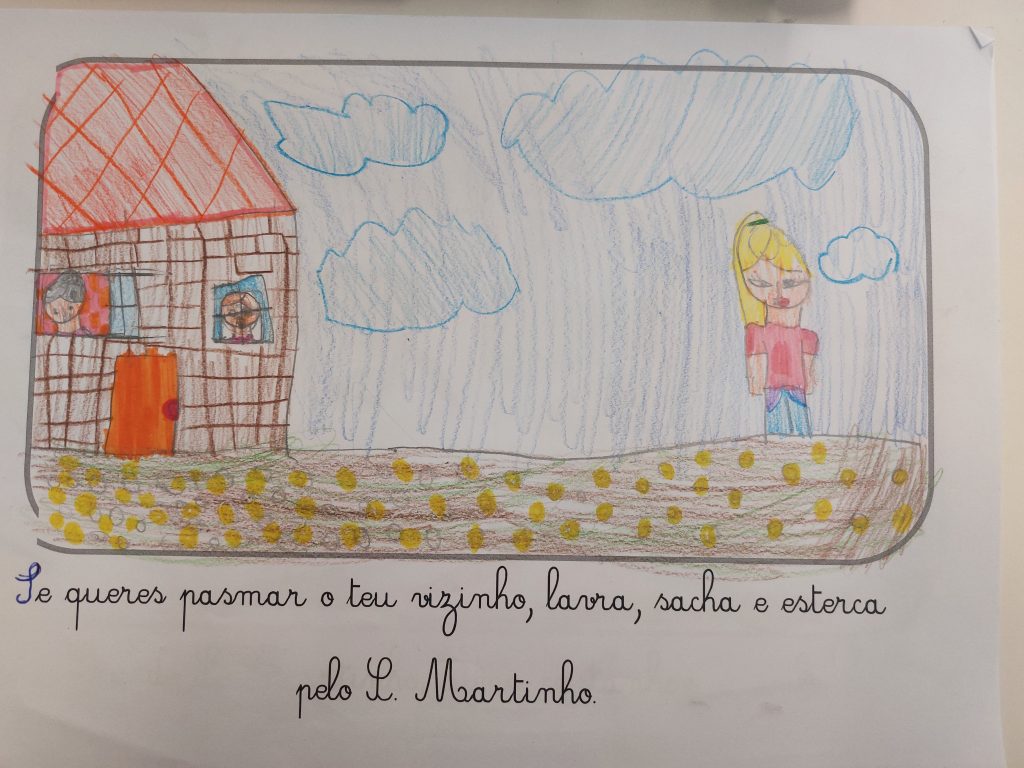 Se queres pasmar o teu vizinho, lavra, sacha e esterca
pelo S. Martinho.